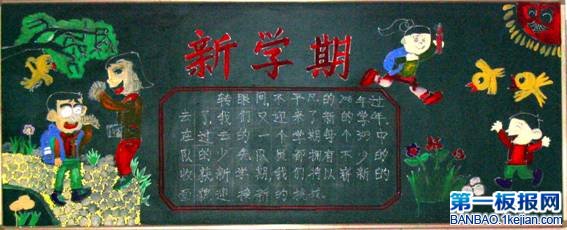 新学期
转眼间,不平凡的年过
去了,我们又迎来了新的学年.
在过去的一个学期每个中
队的少先队员都拥有不少的
收获,新学期,我们将以崭新的
面貌迎接新的挑战
第一板报网
BANBAO.1kejian.com